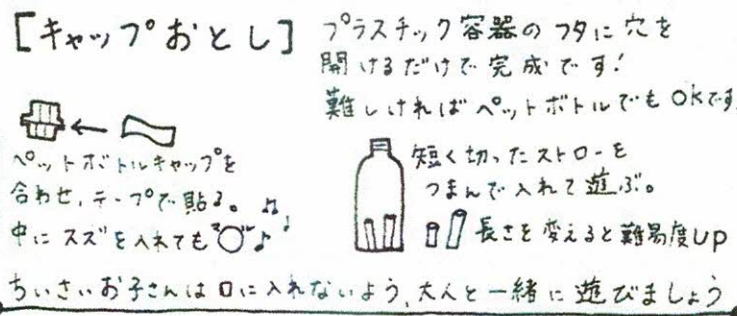 [キャップおとし]
プラスチック容器のフタに穴を
開けるだけで完成です!
難しければペットボトルでもOKです
ペットボトルキャップを
合わせ、テープで貼る。
中にスズを入れても
短く切ったストローを
つまんで入れて遊ぶ。
長さを変えると難易度UP
ちいさいお子さんは口に入れないよう、大人と一緒に遊びましょう